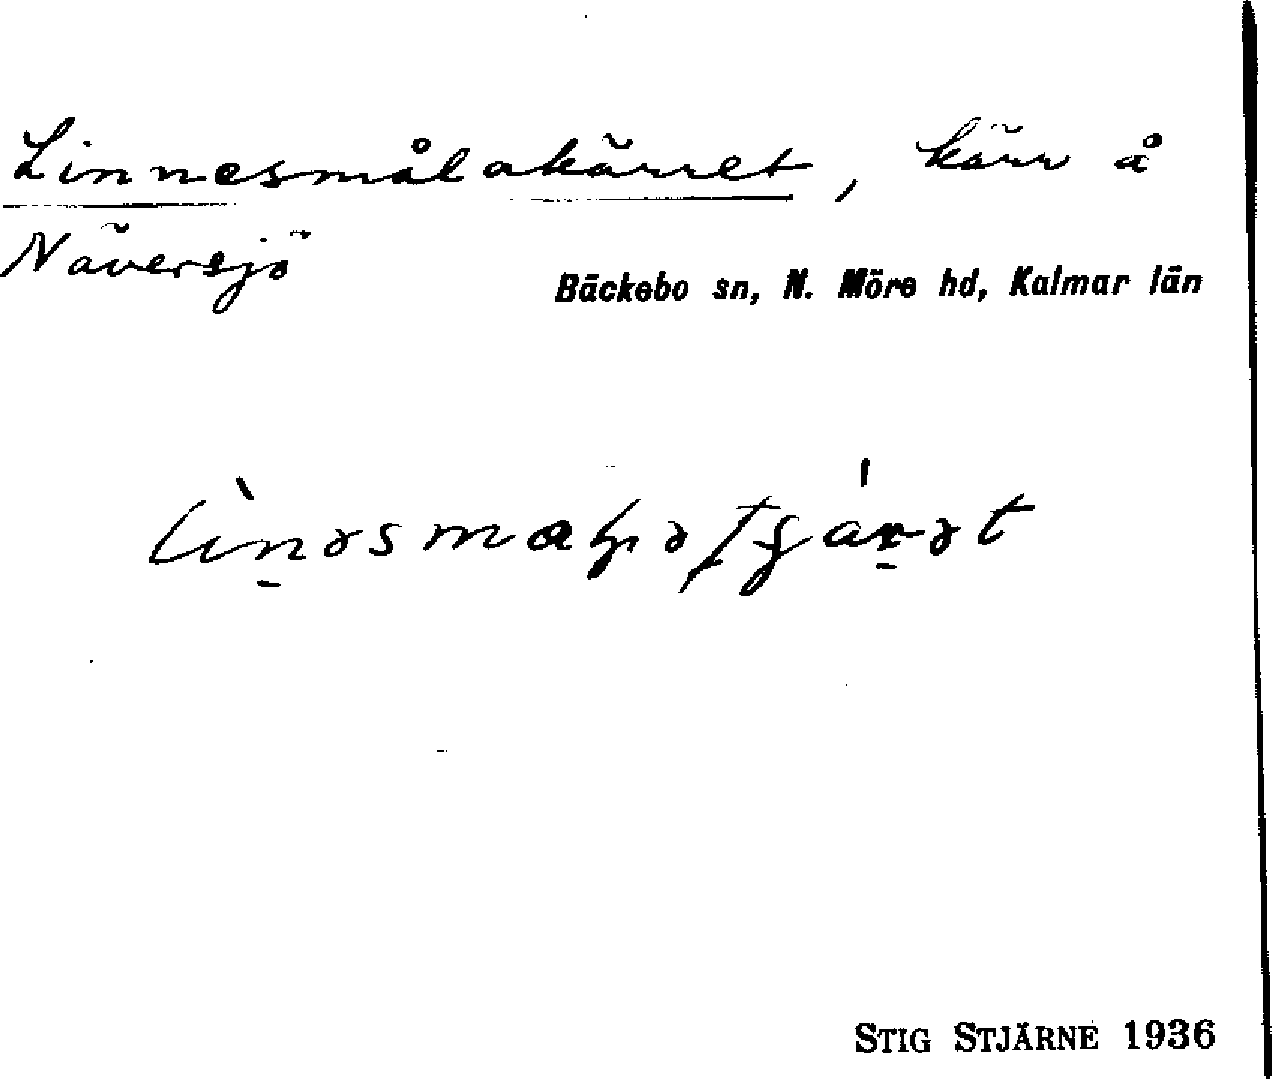 Linnesmålakärret, kärr å
Näversjö
Bäckebo sn, N. Möre hd, Kalmar län
STIG STJÄRNE 1936